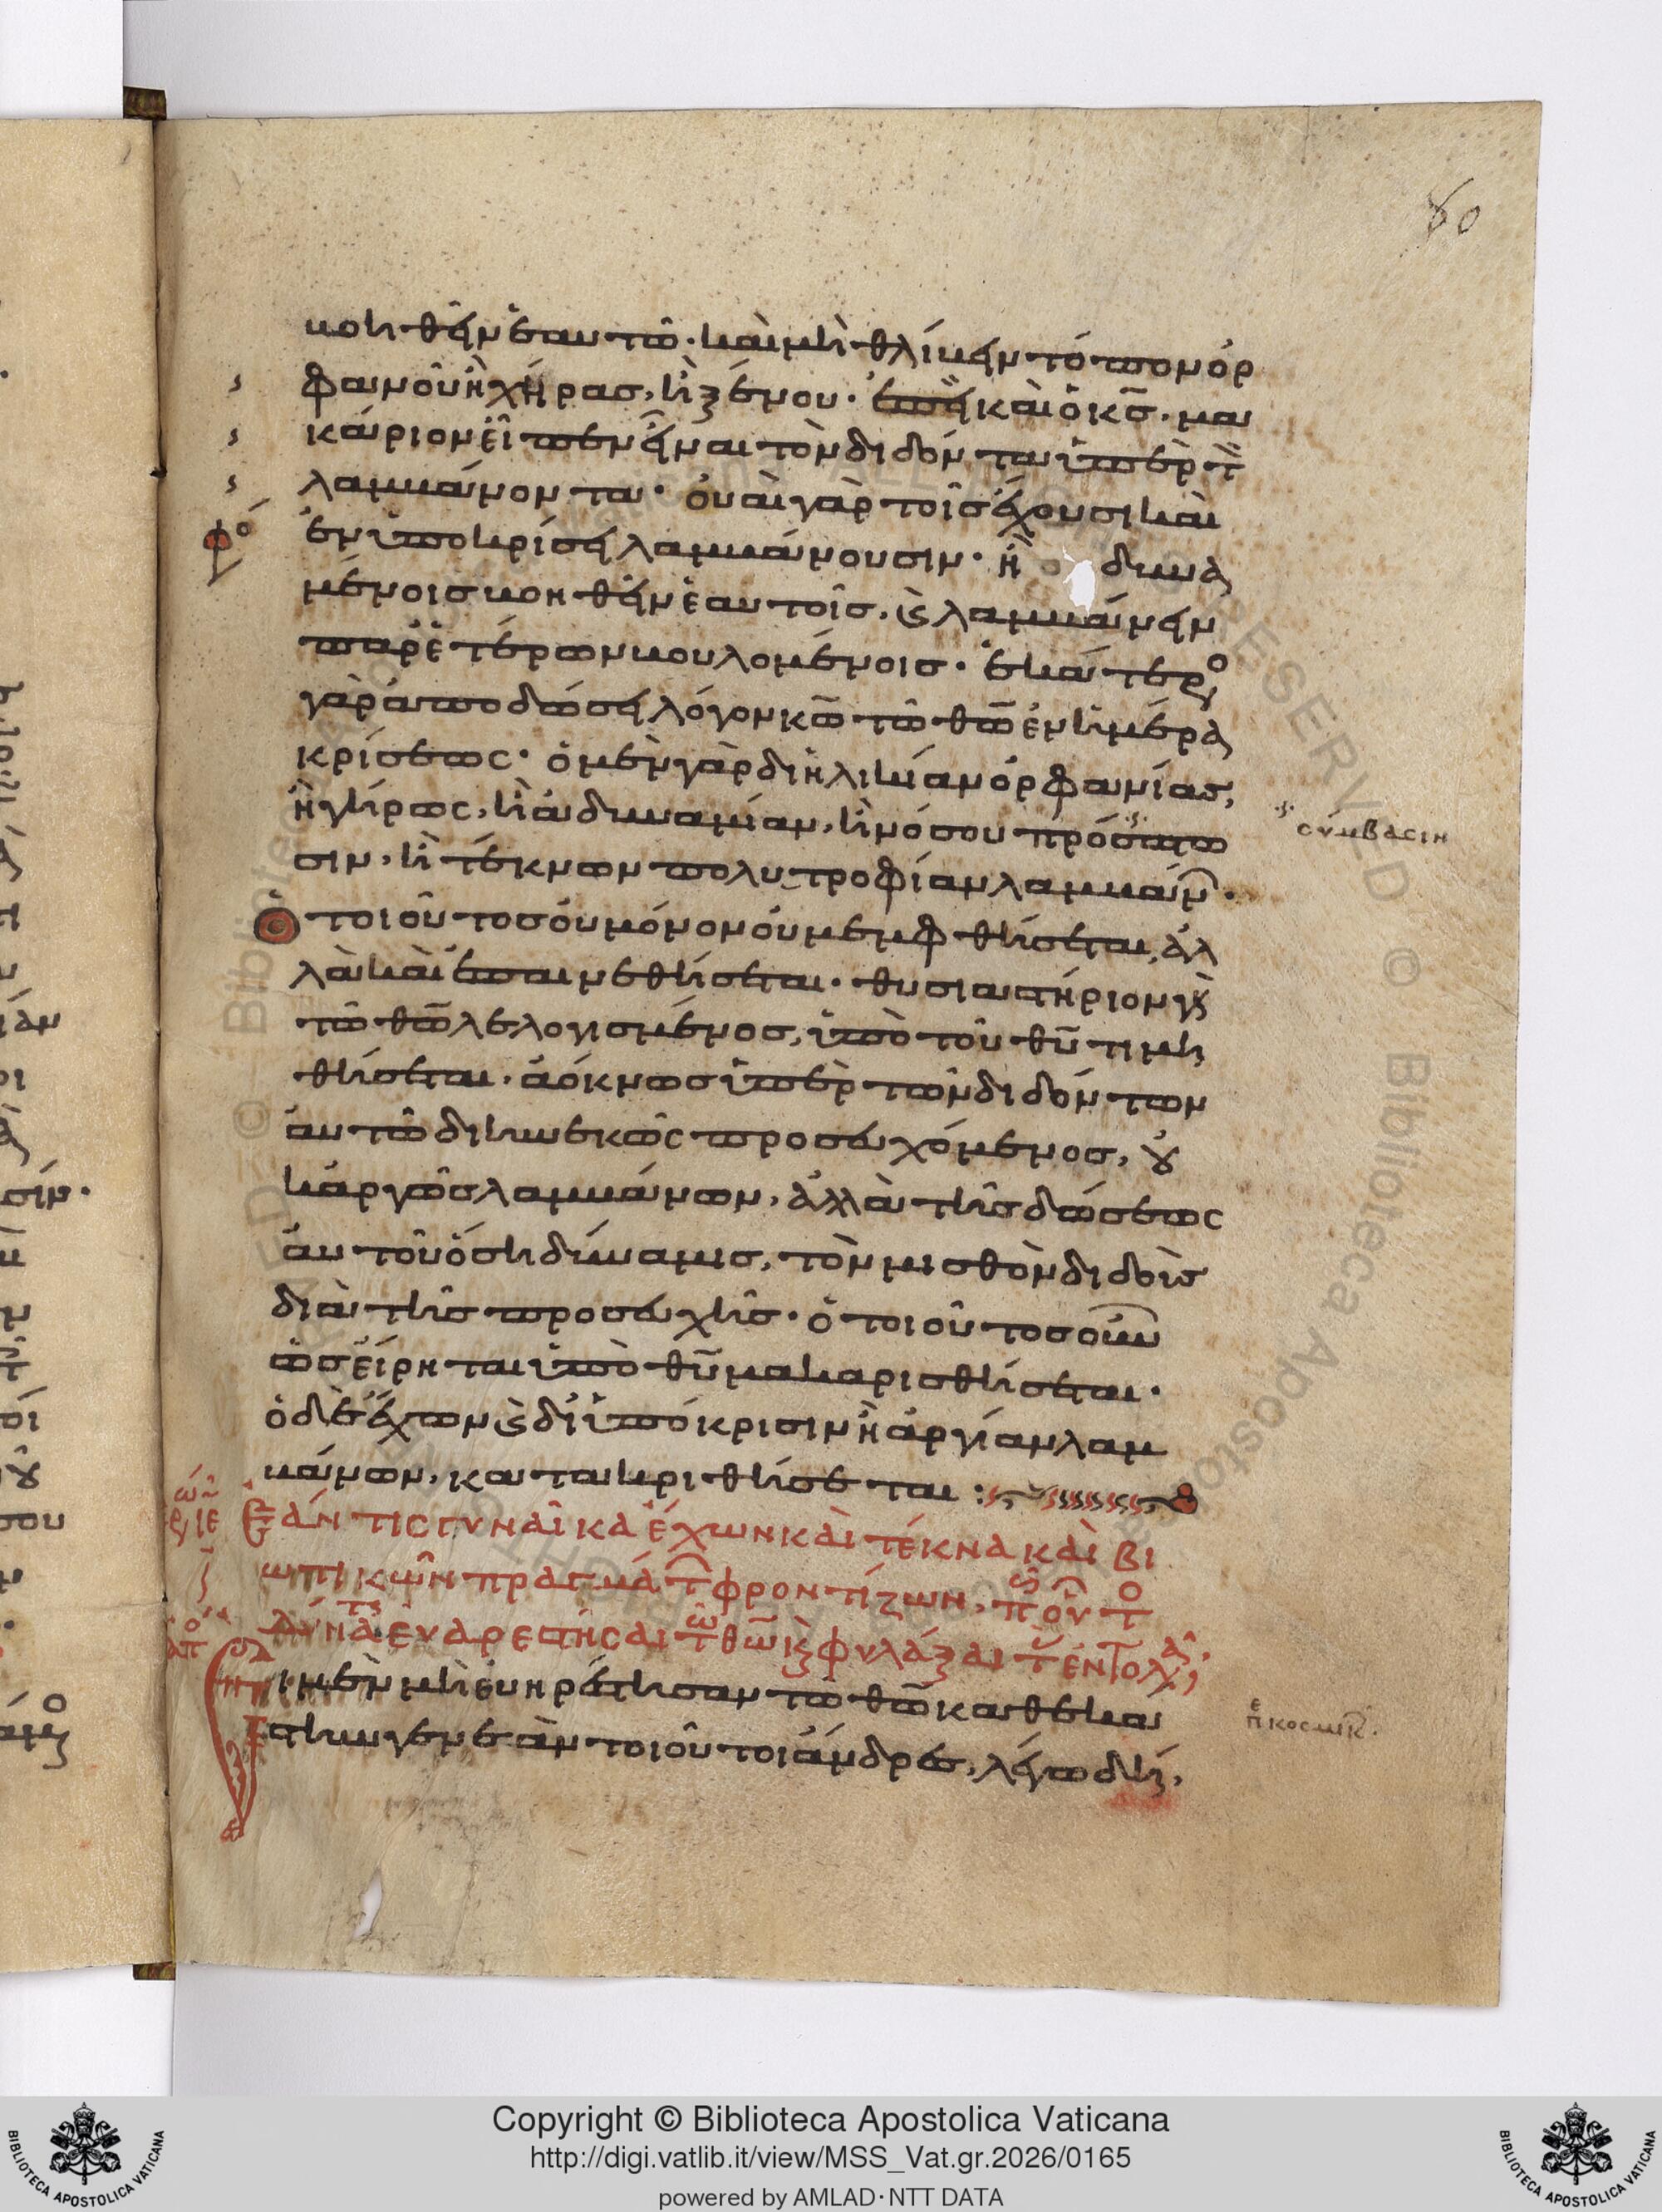 80
βοηθεῖν ἑαυτῶ· καὶ μὴ θλίβειν τόπον ὀρ
φανοῦ ἢ χήρας, ἢ ξένου· ἐπεὶ καὶ ὁ κς̅. μα
κάριον εἶπεν εἶναι τὸν διδόντα ὑπὲρ τὸν
λαμβάνοντα· οὐαὶ γὰρ τοῖς ἔχουσι καὶ
ἐν ὑποκρίσει λαμβάνουσιν· ἢ δυνα
μένοις βοηθεῖν ἑαυτοῖς, καὶ λαμβάνειν
παρ' ἑτέρων βουλομένοις· ἑκάτερος
γὰρ ἀποδώσει λόγον κω̅ τῶ θω̅ ἐν ἡμέρα
κρίσεως· ὁ μὲν γὰρ δι ἡλικίαν ὀρφανίας,
ἢ γήρως, ἢ ἀδυναμίαν, ἢ νόσου πρόσπτω
σύμβασιν
σιν, ἢ τέκνων πολυτροφίαν λαμβάνων·
ὁ τοιοῦτος οὐ μόνον οὐ μεμφθήσεται, ἀλ
λὰ καὶ ἐπαινεθήσεται· θυσιαστήριον γὰρ
τῶ θω̅ λελογισμένος, ὑπὸ τοῦ θυ̅ τιμη
θήσεται. ἀόκνως ὑπὲρ τῶν διδόντων
αὐτῶ διηνεκῶς προσευχόμενος, οὐ
κ ἀργῶς λαμβάνων, ἀλλὰ τῆς δώσεως
αὐτοῦ ὅση δύναμις, τὸν μισθὸν διδοὺς
διὰ τῆς προσευχῆς· ὁ τοιοῦτος οὖν
ὡς εἴρηται ὑπὸ θυ̅ μακαρισθήσεται·
ὁ δὲ ἔχων καὶ δι' ὑπόκρισιν ἢ ἀργίαν λαμ
βάνων, κατακριθήσεται :
ἐρ ιε Ἐάν τις γυναῖκα ἔχων καὶ τέκνα καὶ βι
ωτικῶν πραγμάτων φροντίζων, πῶς οὖν το
δύναται εὐαρεστῆσαι τῶ θω̅ καὶ φυλάξαι τὰς ἐντολάς,
Εἰ μὲν μὴ εὐηρέστησαν τῶ θω̅ καθ' ἑκά
ἐπ κοσμικ
στην γενεὰν τοιοῦτοι ἄνδρες, λέγω δὴ,
Copyright © Biblioteca Apostolica Vaticana
http://digi.vatlib.it/view/MSS_Vat.gr.2026/0165
powered by AMLAD·NTT DATA
BIBLIOTECA APOSTOLICA VATICANA
BIBLIOTECA APOSTOLICA VATICANA